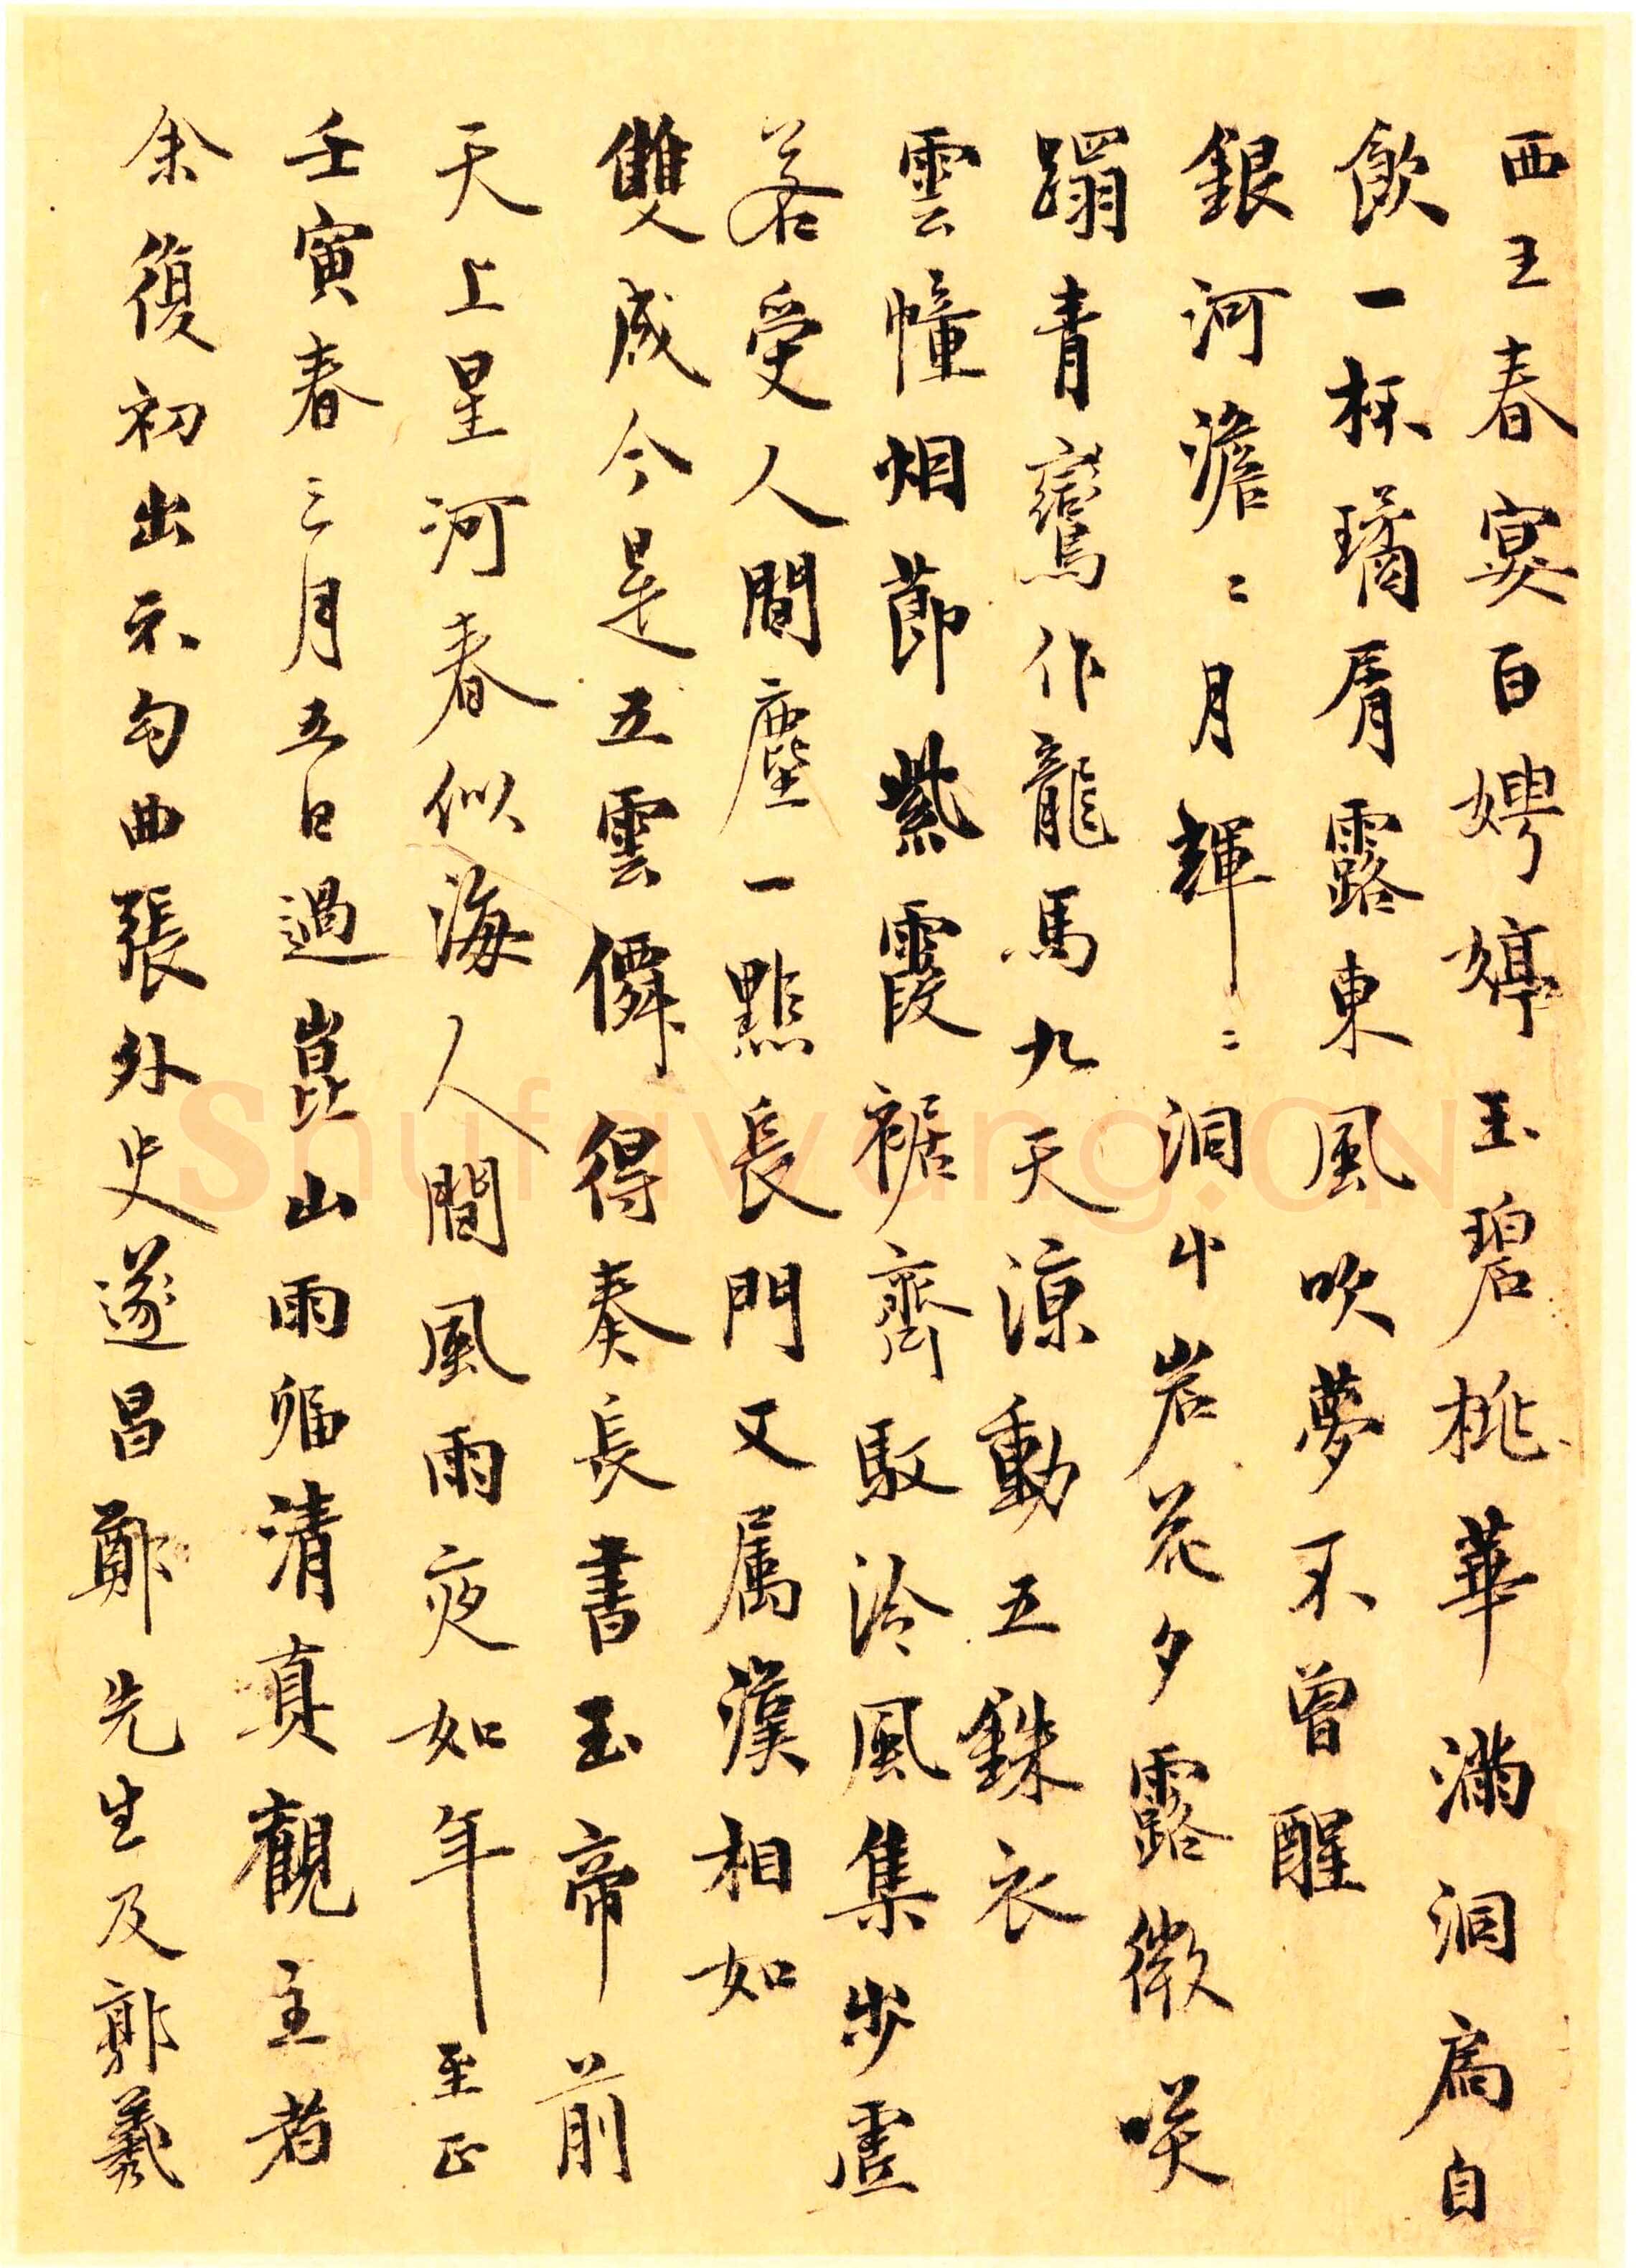 西王春宴百娉婷玉碧桃華滿洞扃自
飲一杯璚屑露東風吹夢不曾醒
銀河澹〻月輝〻洞中岩花夕露微咲
躡青鸞作龍馬九天涼動五銖衣
雲幢烟節紫霞裾齊馭泠風集步虛
若受人間塵一點長門又属漢相如
雙成今是五雲僊得奏長書玉帝前
天上星河春似海人間風雨夜如年至正
壬寅春三月五日過崑山雨宿清真觀主者
余復初出示勾曲張外史遂昌鄭先生及郭羲
shufawang.CN